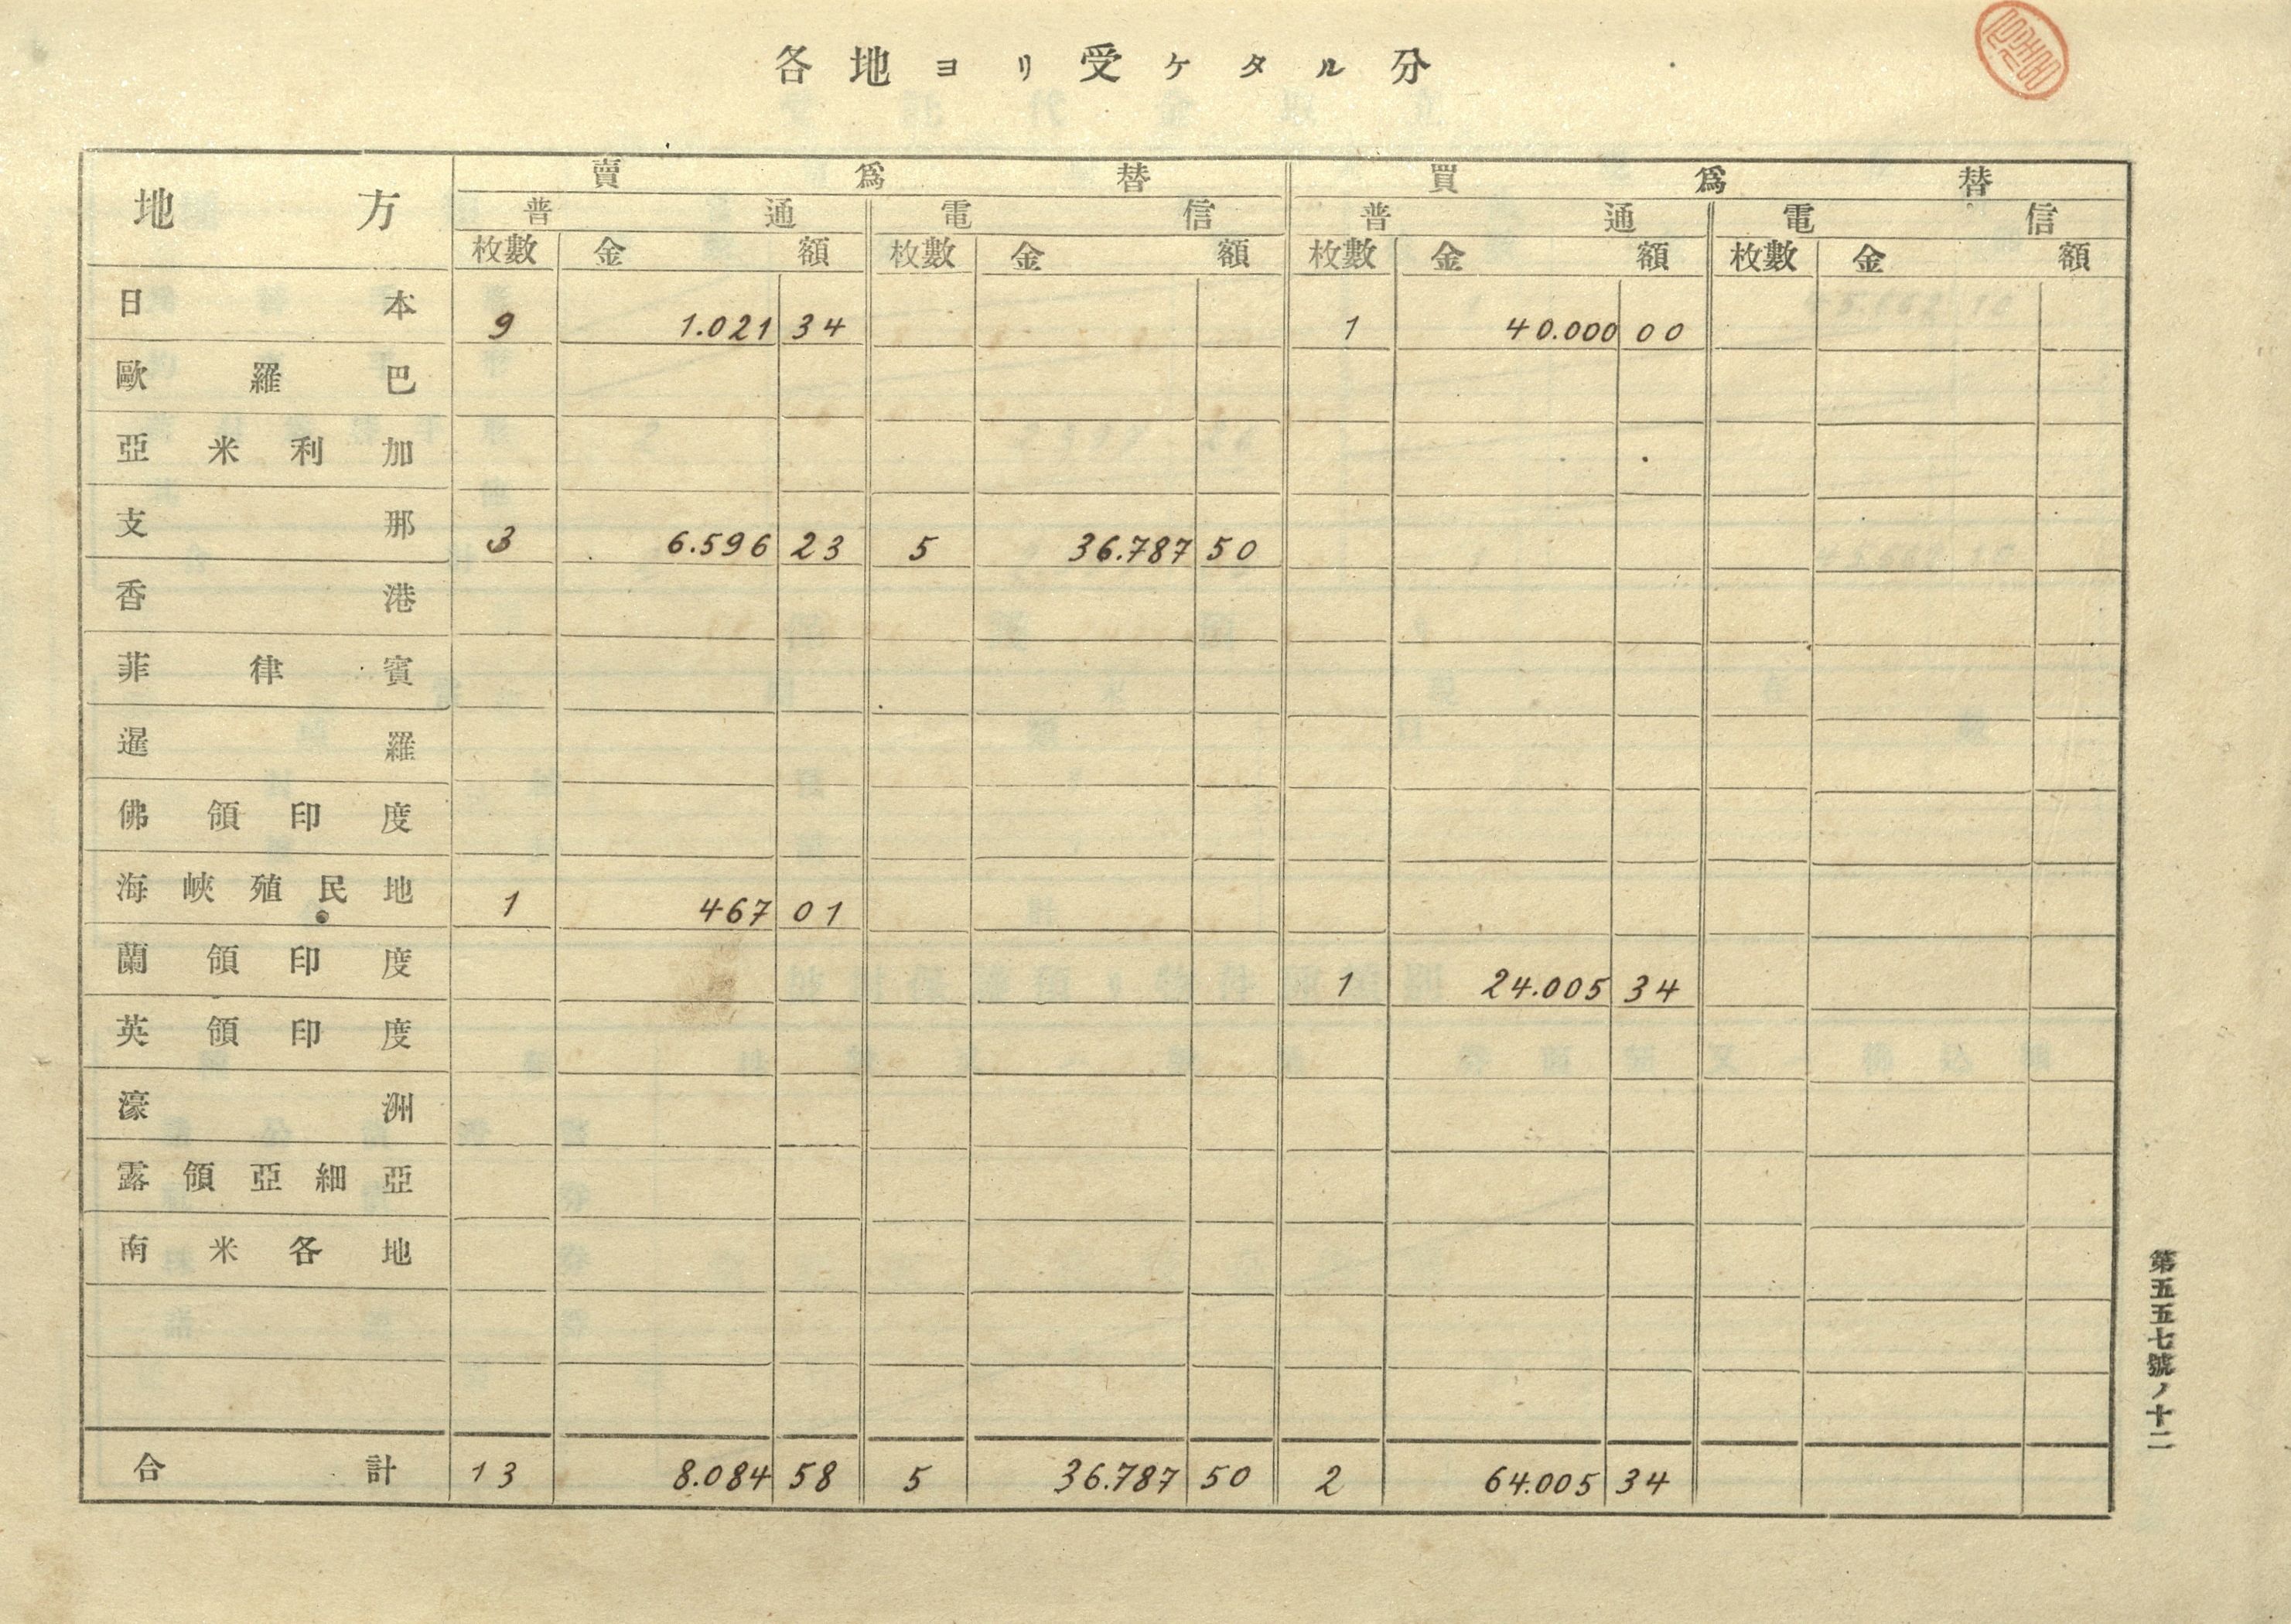 各地ヨリ受ケタル分
地方 賣爲替 買爲替
普通 電信 普通 電信
枚數 金額 枚數 金額 枚數 金額 枚數 金額
日本 9 1.021 34 1 40.000 00
歐羅巴
亞米利加
支那 3 6.596 23 5 36.787 50
香港
菲律賓
暹羅
佛領印度
海峽殖民地 1 467 01
蘭領印度 1 24.005 34
英領印度
濠洲
露領亞細亞
南米各地
合計 13 8.084 58 5 36.787 50 2 64.005 34
第五五七號ノ十二